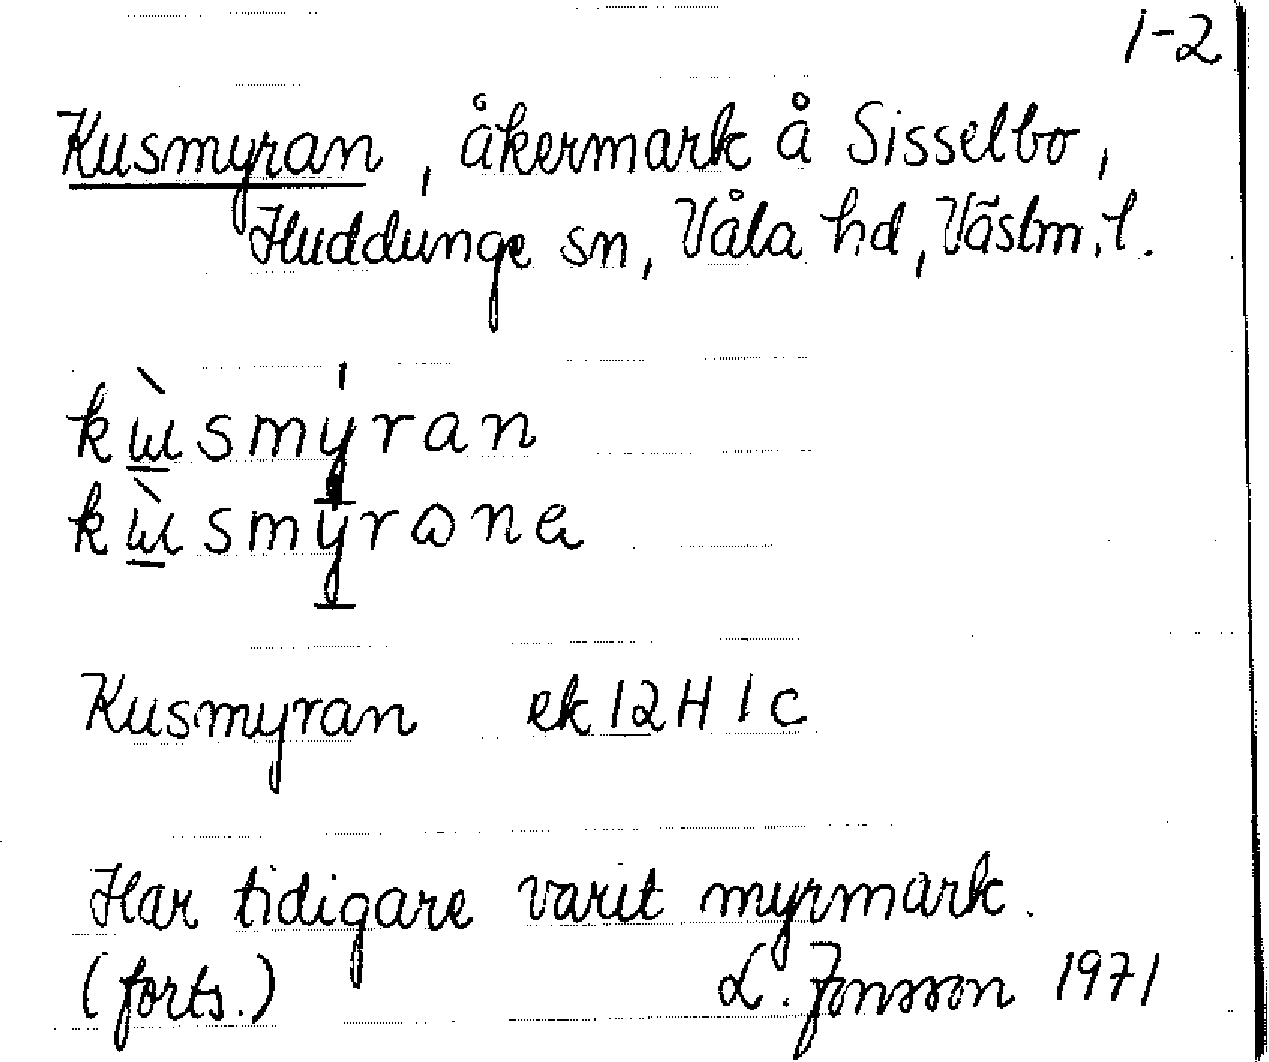 1-2
Kusmyran, åkermark å Sisselbo,
Huddunge sn, Våla hd, Västm. l.
kɯ̱̀smý̱ran
kɯ̱̀smy̱rɷnɐ
Kusmyran ek 12H 1c
Har tidigare varit myrmark.
(forts.) L. Jonsson 1971